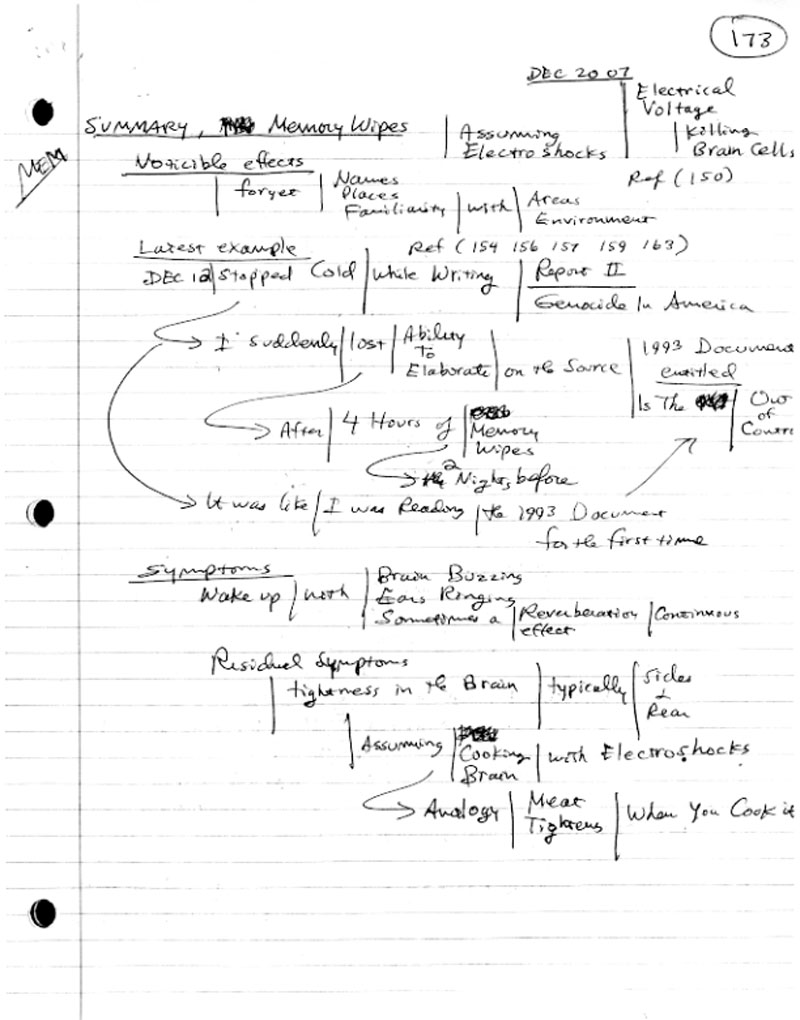 173
DEC 20 07
Electrical
Voltage
Killing
Brain Cells
SUMMARY, Memory Wipes
Assuming
Electroshocks
MEM
Noticible effects
Ref (150)
forget
Names
Places
Familiarity
with
Areas
Environment
Latest example
Ref (154 156 157 159 163)
DEC 12 Stopped Cold While Writing
Report II
Genocide In America
I suddenly lost
Ability
To
Elaborate
on the Source
1993 Document
entitled
Is The
Out
of
Contr
After 4 Hours of
Memory
Wipes
2 Nights before
It was like I was Reading the 1993 Document
for the first time
Symptoms
Wake up with
Brain Buzzing
Ears Ringing
Sometimes a
Reverberation
effect
Continuous
Residual Symptoms
tightness in the Brain typically
Sides
&
Rear
Assuming
Cooking
Brain
with Electroshocks
Analogy
Meat
Tightens
When You Cook it